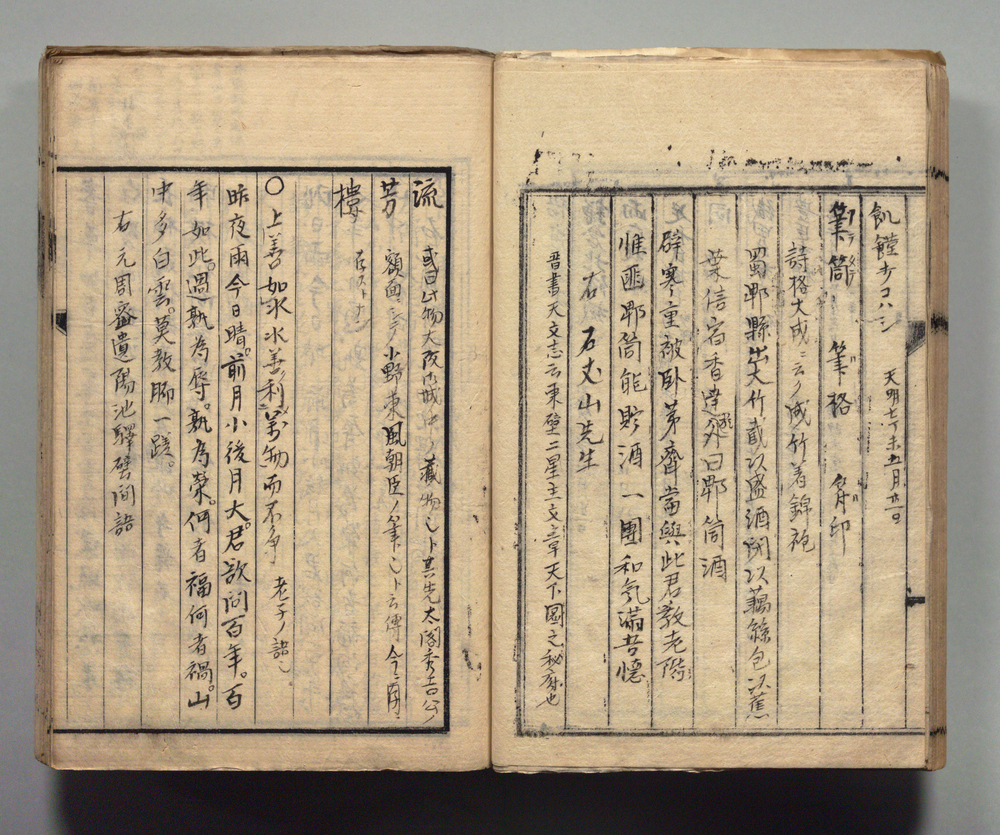 飢饉 天明七丁未五月
筆筒 筆格 印
詩格大成ニ云ク成竹着錦袍
蜀郫縣出大竹截以盛酒閉以藕絲包以蕉
葉信宿香達外曰郫筒酒
辟寒重被臥茅齋當與此君教老階
惟匪郫筒能貯酒一團和氣滿吾懷
右 石丈山先生
晋書天文志云東壁二星主文章天下圖之秘府也
流 或曰此物大阪御城中藏物也ト其先太閤秀吉公ノ
芳 額面ニシテ小野東風朝臣ノ筆也ト云傳今
樓
〇上善如水水善利萬物而不争 老子ノ語也
昨夜雨今日晴。前月小後月大。君欲問百年。百
年如此。過孰為辱。孰為榮。何者福何者禍。山
中多白雲。莫教脚一蹉。
右元周密遺陽池驛壁間語